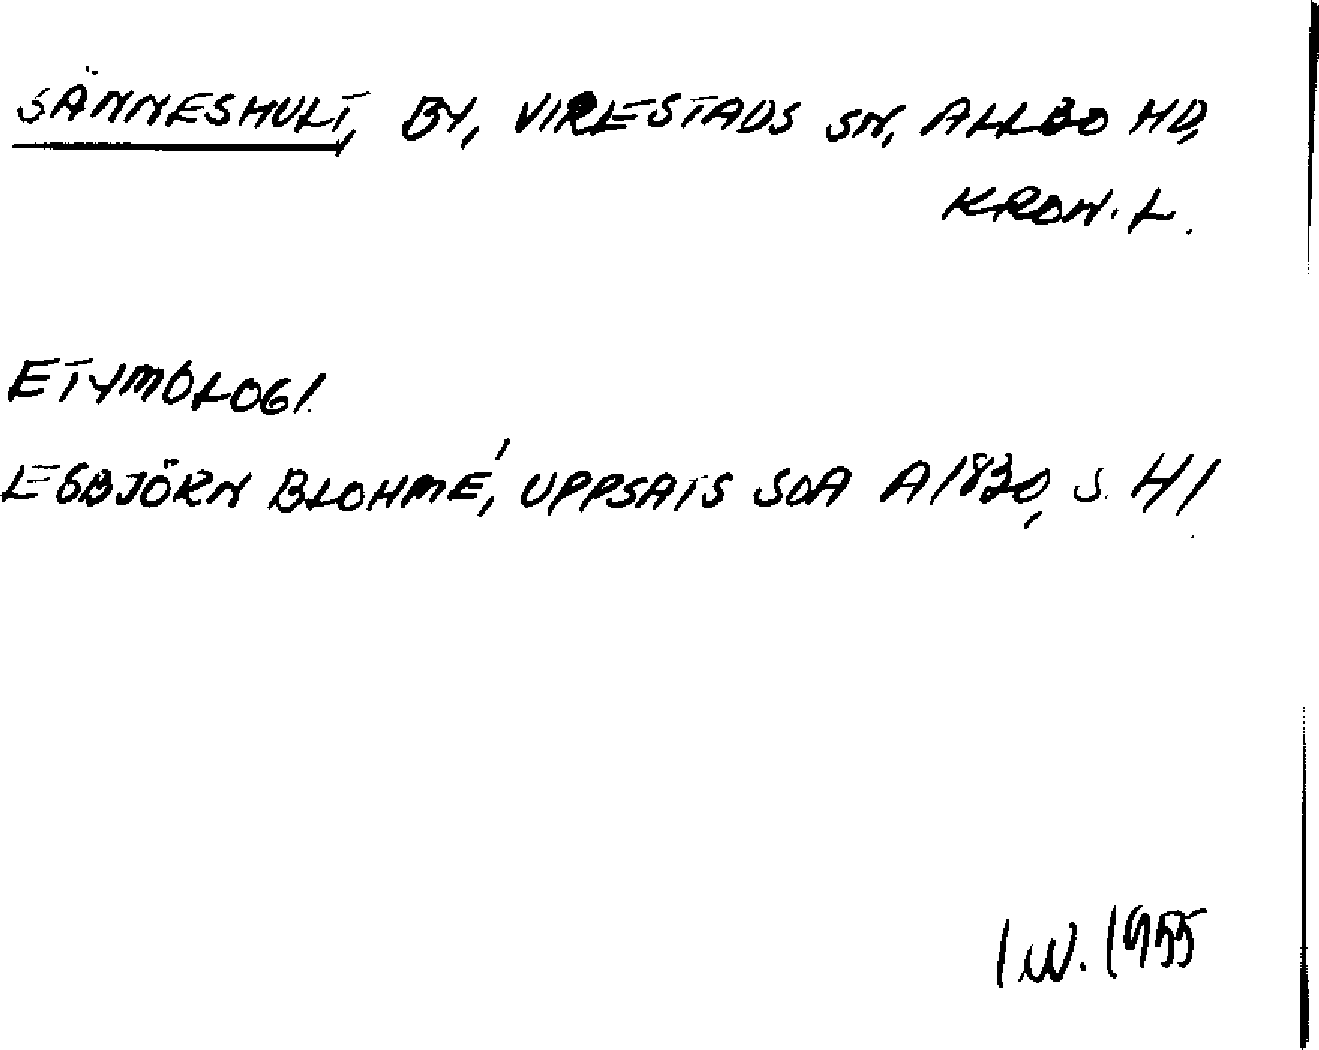 SÄNNESHULT, BY, VIRESTADS SN, ALLBO HD,
KRON. L.
ETYMOLOGI.
ESBJÖRN BLOHMÉ, UPPSATS SOA A1830, S. 41.
IW. 1955